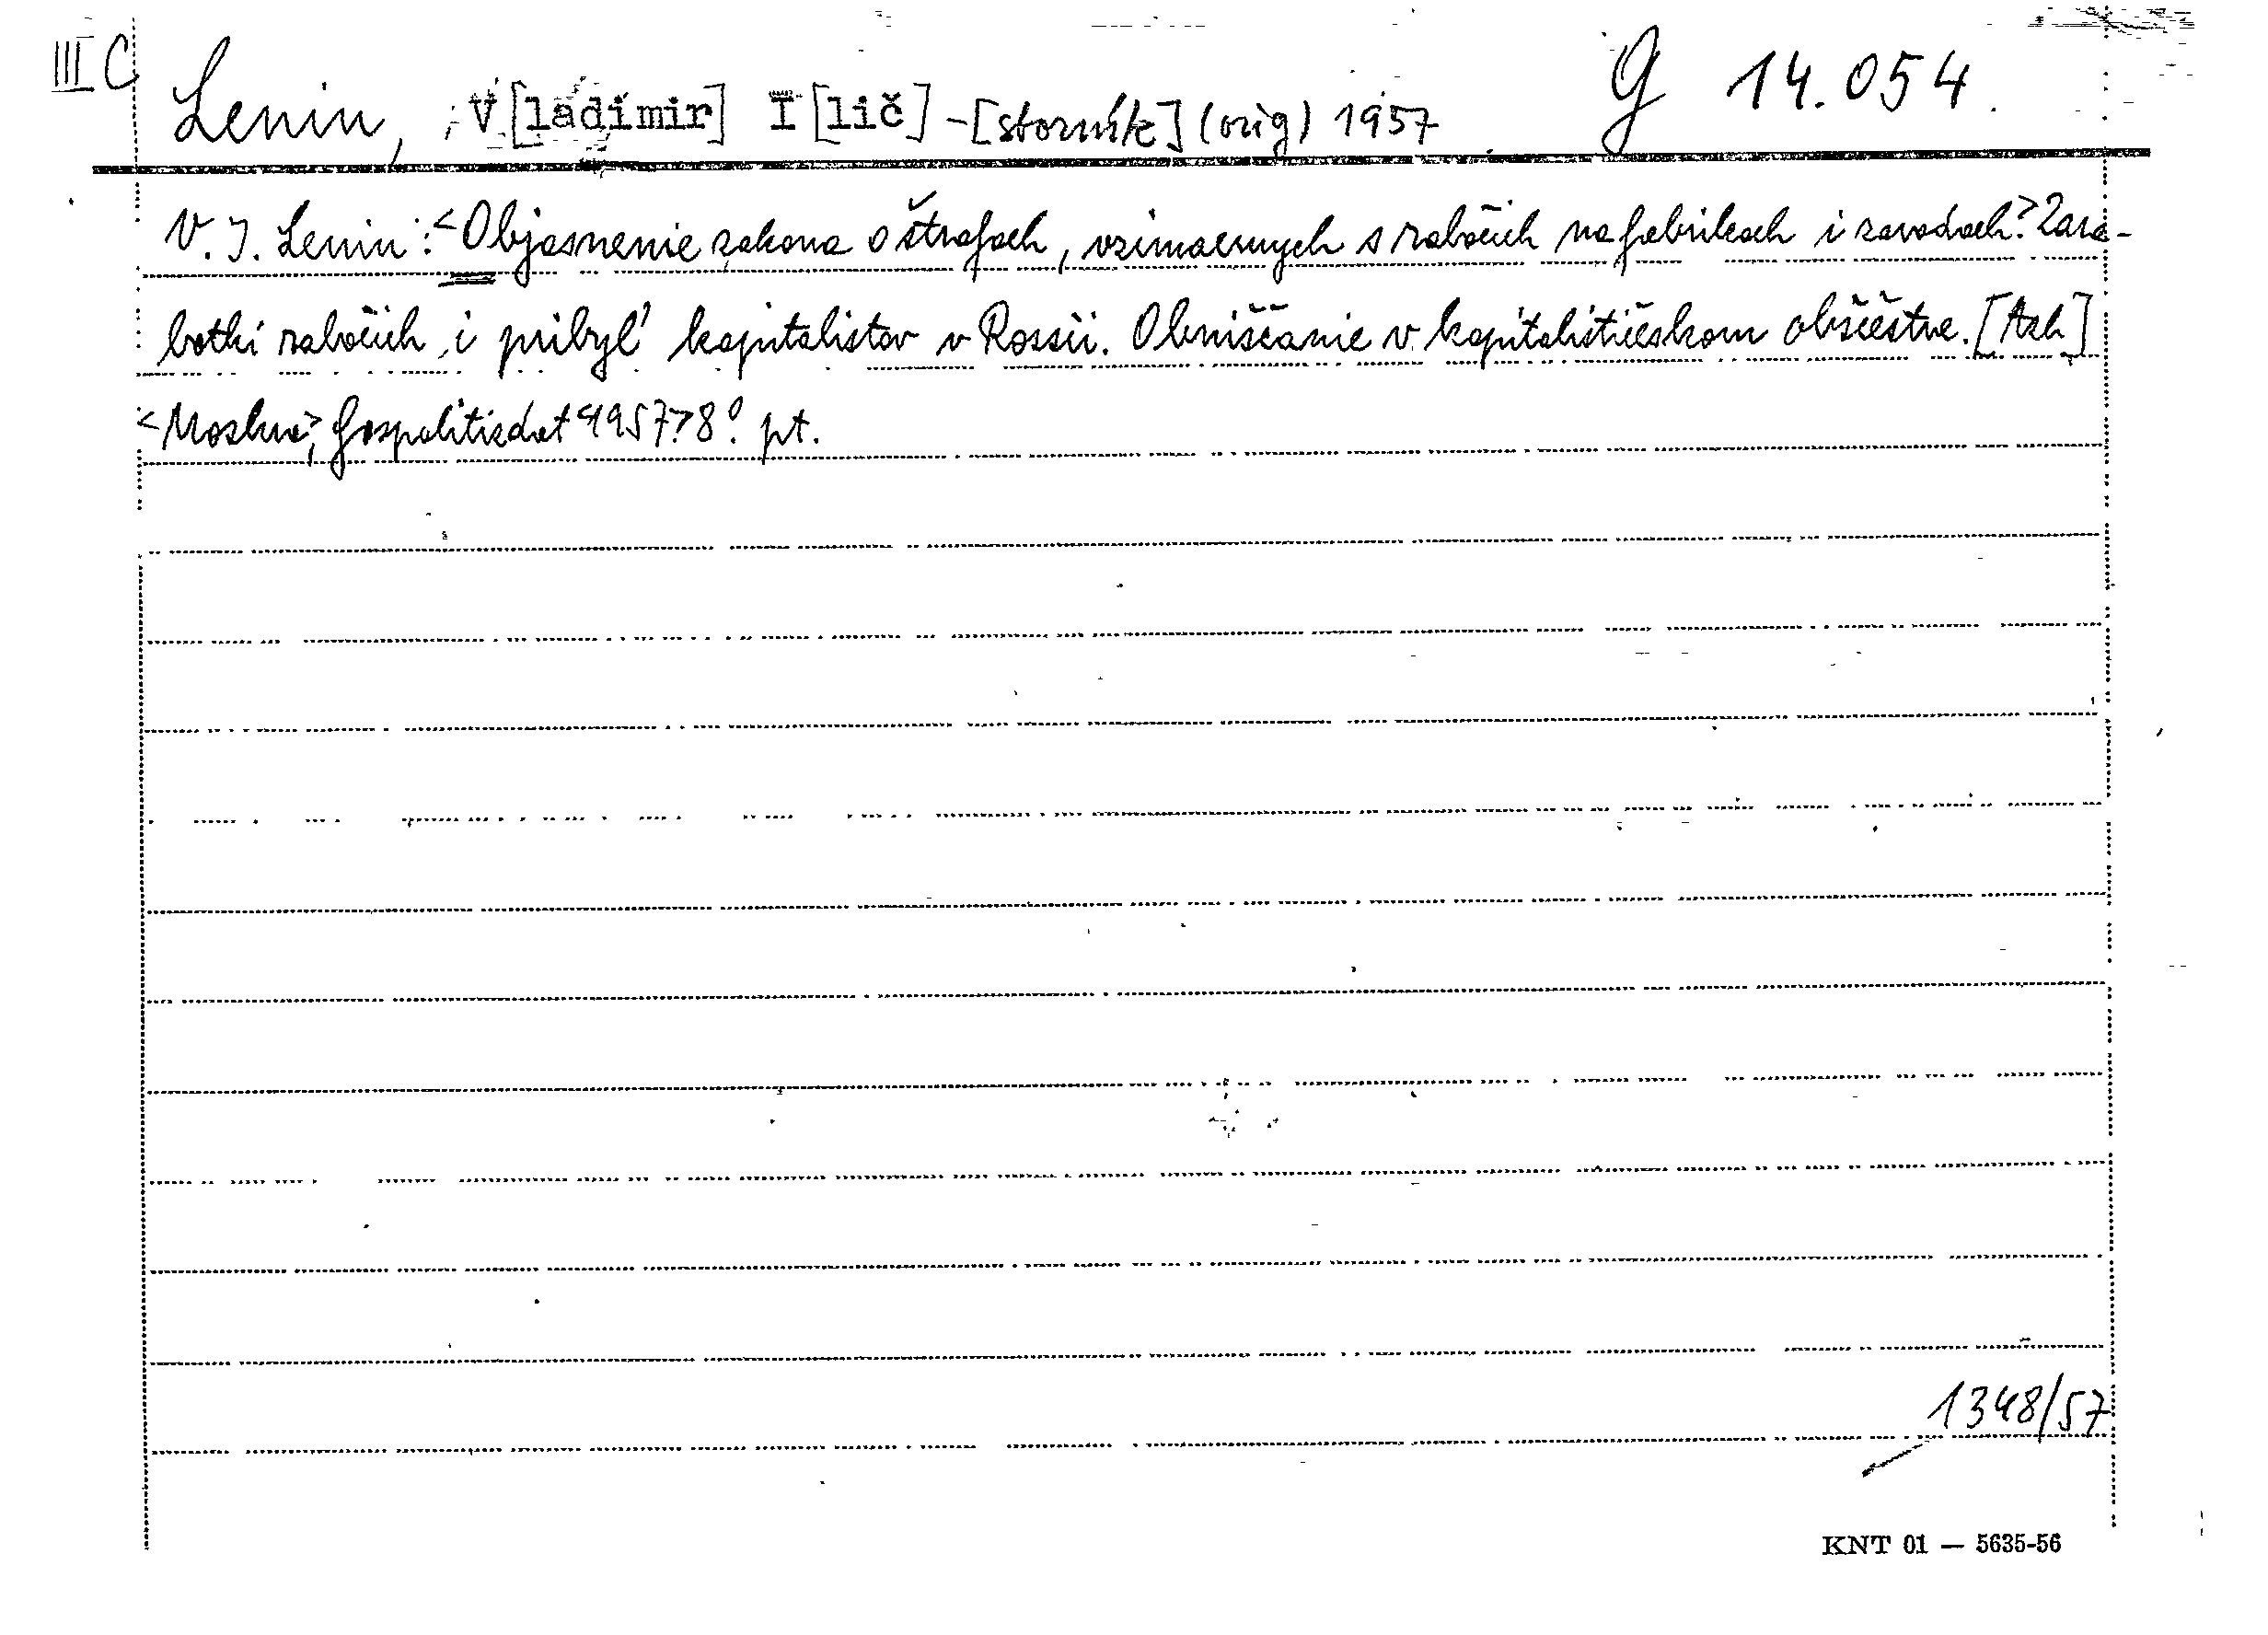 III C
Lenin, V[ladimir] I[lič] - [sborník] (orig) 1957 G 14.054
V. I. Lenin: <Objasnenie zakona o štrafach, vzimaemych s rabočich na fabrikach i zavodach.> Zara-
botki rabočich i pribyl' kapitalistov v Rossii. Obniščanie v kapitalističeskom obščestve.
<Moskva>, Gospolitizdat <1957.> 8°. pt.
1348/57
KNT 01 — 5635-56